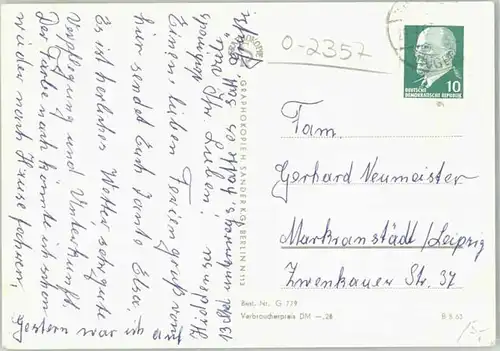 O-2357
DEUTSCHE
DEMOKRATISCHE REPUBLIK
10
Fam.
Gerhard Neumeister
Markranstädt/Leipzig
Zwenkauer Str. 37
Best. Nr. G 779
Verbraucherpreis DM —,28
B 5 63
5,-
GRAPHOKOPIE H. SANDER KG BERLIN N 113
Ihr Lieben!
Einen lieben Feriengruß von
hier sendet Euch Tante Elsa.
Es ist herliches Wetter, sehr gute
Verpflegung und Unterkunft.
Der Farbe nach könnte ich schon
wieder nach Hause fahren,
Gestern war ich auf
Hiddensee
13 Uhr